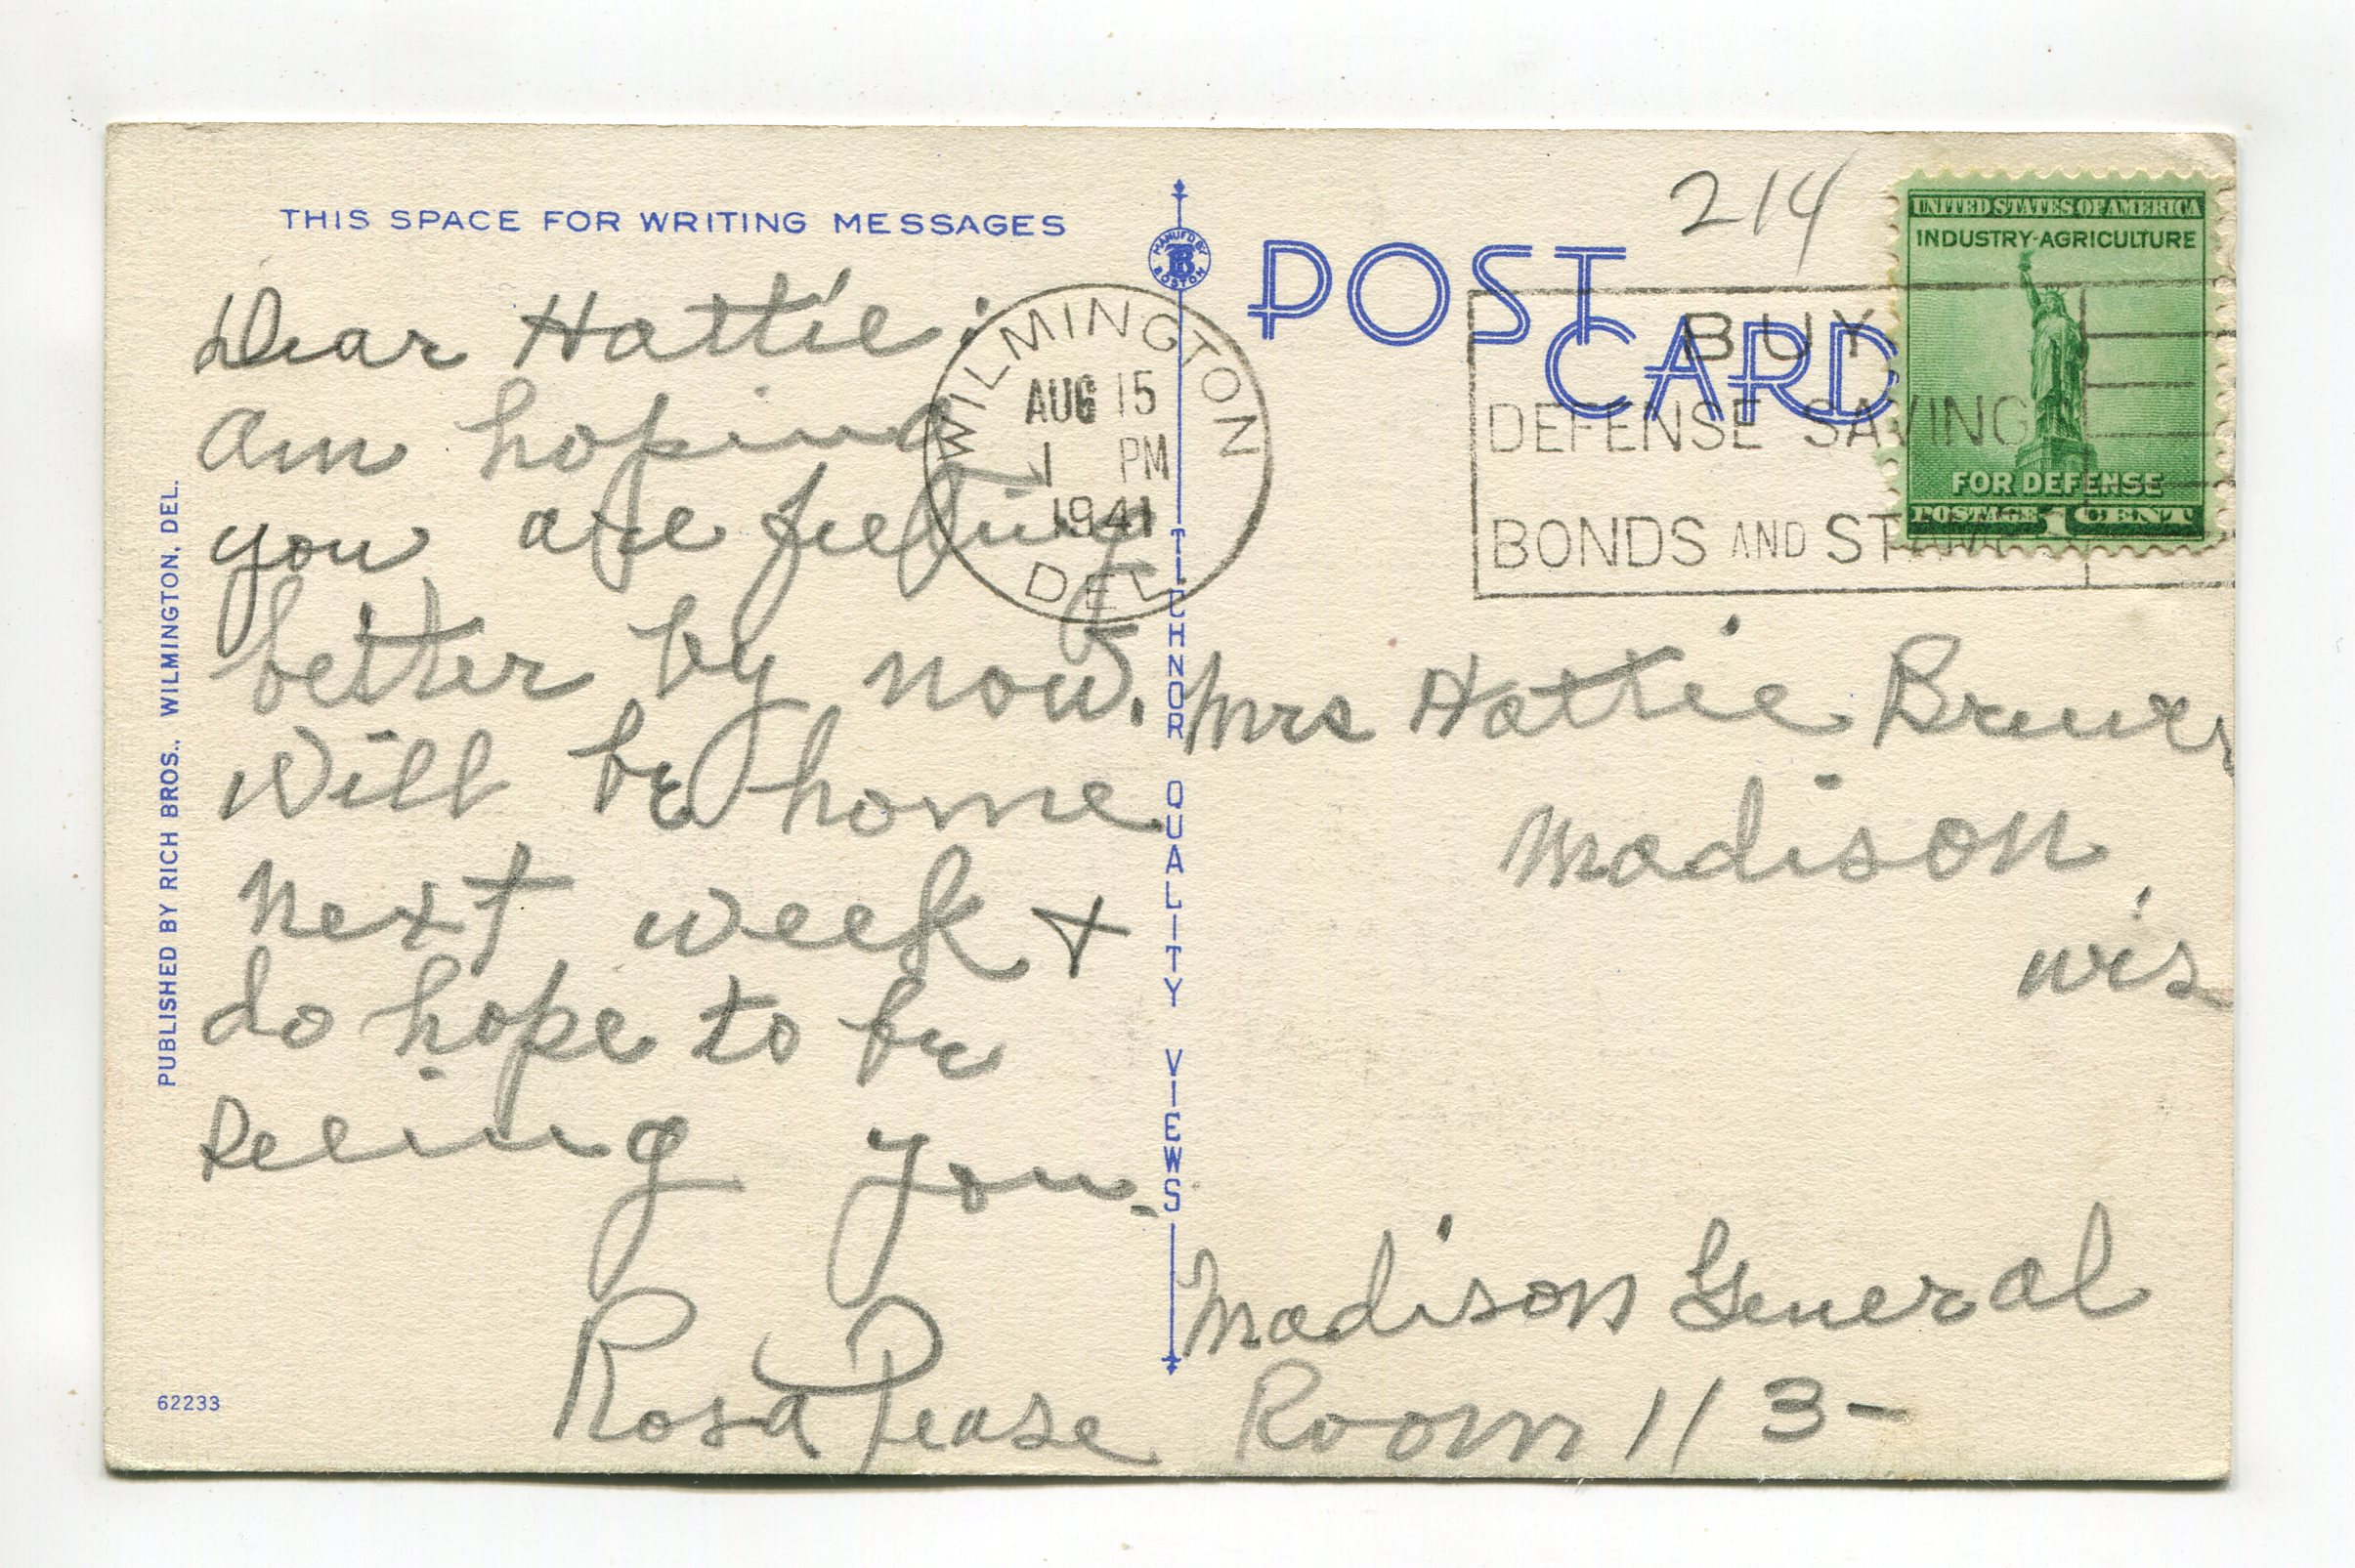 THIS SPACE FOR WRITING MESSAGES
Dear Hattie:
Am hoping
you are feeling
better by now.
Will be home
next week +
do hope to be
seeing you.
Rosa Pease
PUBLISHED BY RICH BROS., WILMINGTON, DEL.
62233
MANUF'D BY
TB
BOSTON
TICHNOR QUALITY VIEWS
WILMINGTON
AUG 15
1 PM
1941
DEL
214
POST
CARD
BUY
DEFENSE SAVING
BONDS AND STAMPS
UNITED STATES OF AMERICA
INDUSTRY-AGRICULTURE
FOR DEFENSE
POSTAGE 1 CENT
Mrs Hattie
Madison,
Wis
Madison General
Room 113-